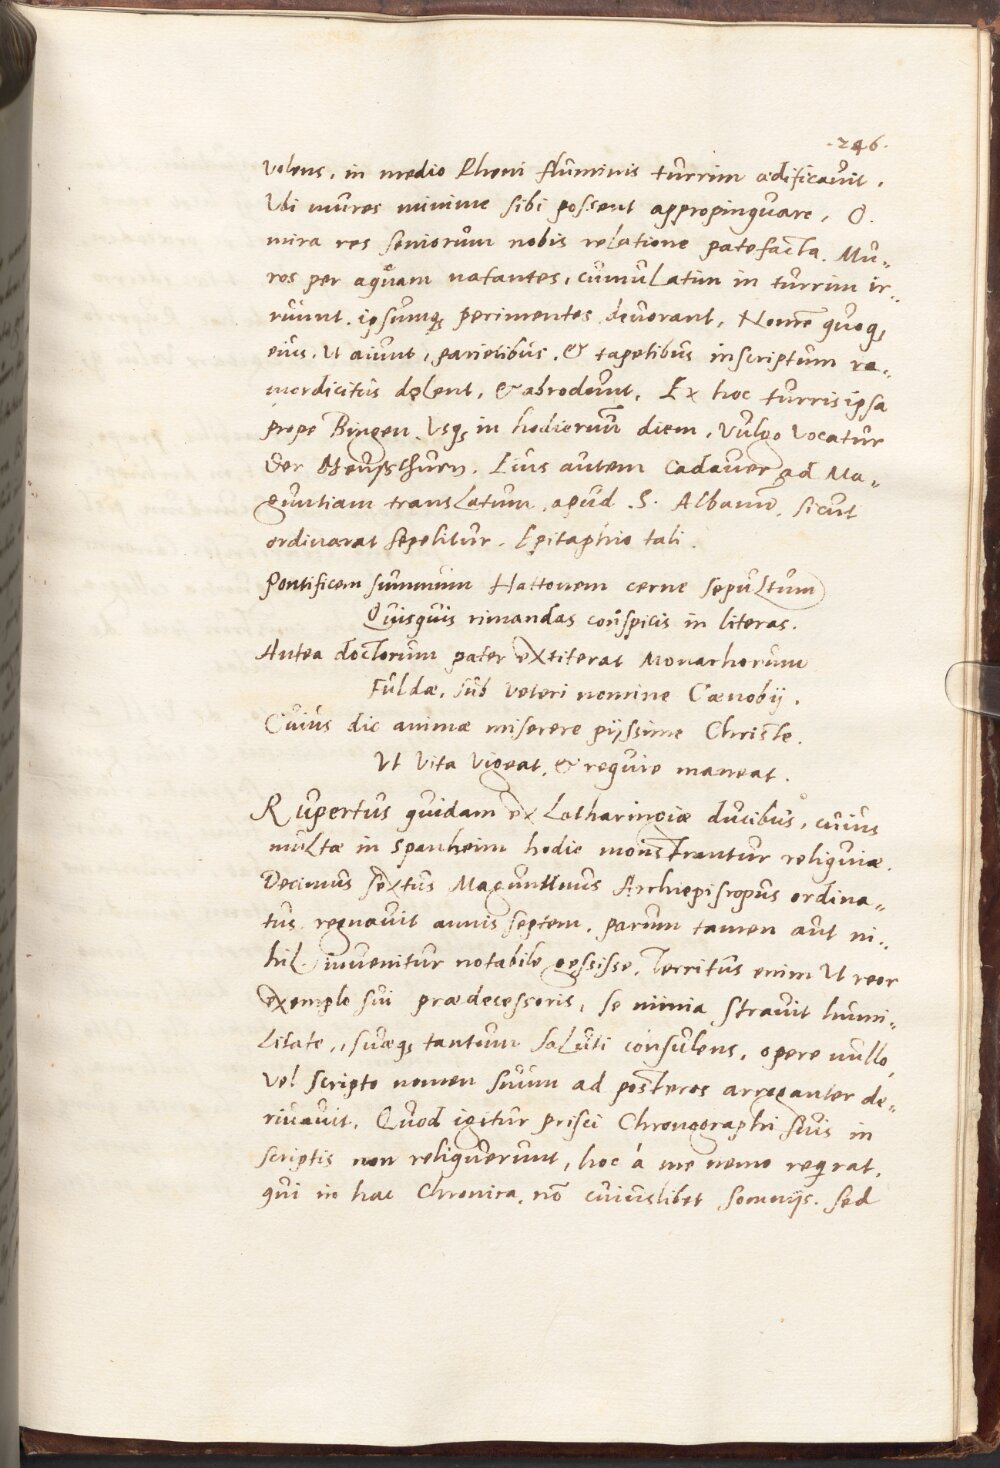 .246.
volens, in medio Rheni fluminis turrim ædificavit,
Ubi mures minime sibi possent appropinquare, O.
mira res seniorum nobis relatione patefacta. Mu„
res per aquam natantes, cumulatim in turrim ir„
ruunt, ipsumq; perimentes devorant, Nomē quoq;
eius, Ut aiunt, parietibus, & tapetibus inscriptum ra„
mordicitus delent, & abrodunt, Ex hoc turris ipsa
prope Bingen, Usq; in hodiernū diem, Vulgo Vocatur
Der Meüssthurn. Eius autem Cadaver ad Ma„
guntiam translatum, apud .S. Albanū, sicut
ordinarat sepelitur. Epitaphio tali.
Pontificem summum Hattonem cerne sepultum
Quisquis rimandas conspicis in literas.
Antea doctorum pater extiterat Monarhorum
Fuldæ, sub Veteri nomine Cænobij.
Cuius dic animæ miserere pijssime Christe.
Ut Vita Vigeat, & requie maneat.
Rupertus quidam ex Lotharingiæ ducibus, cuius
multæ in Spanheim hodie monstrantur reliquiæ.
Decimus sextus Maguntinus Archiepiscopus ordina„
tus, regnavit annis septem, parum tamen aut ni„
hil invenitur notabile gessisse, Territus enim Ut reor
exemplo sui prædecessoris, se nimia stravit humi„
litate, suæq; tantum saluti consulens, opere nullo,
Vel scripto nomen suum ad posteros arroganter de„
rivavit. Quod igitur prisci Chronographi suis in
scriptis non reliquerunt, hoc á me nemo reqirat,
qui in hac Chronica, nō cuiuslibet somnijs. sed